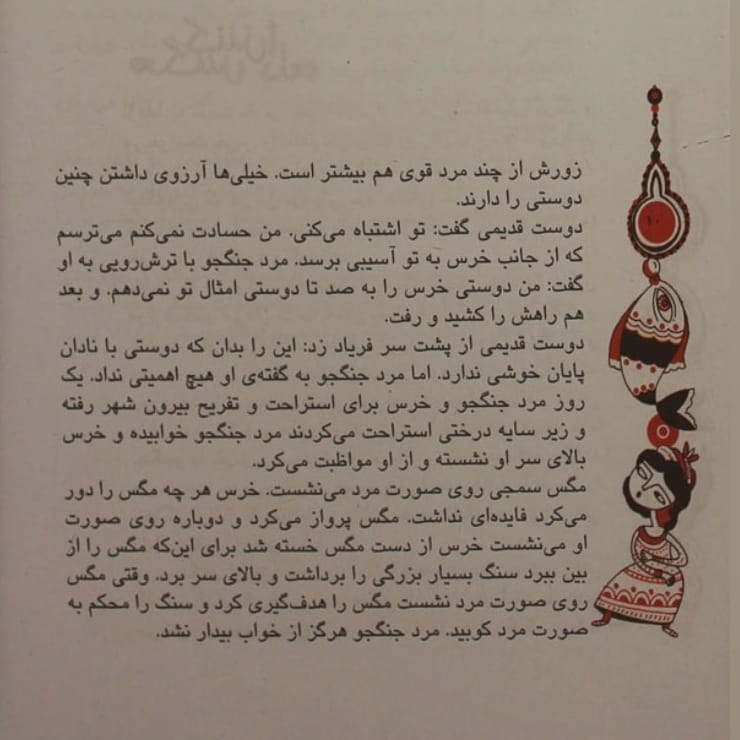 زورش از چند مرد قوی هم بیشتر است. خیلی‌ها آرزوی داشتن چنین
دوستی را دارند.
دوست قدیمی گفت: تو اشتباه می‌کنی. من حسادت نمی‌کنم می‌ترسم
که از جانب خرس به تو آسیبی برسد. مرد جنگجو با ترش‌رویی به او
گفت: من دوستی خرس را به صد تا دوستی امثال تو نمی‌دهم. و بعد
هم راهش را کشید و رفت.
دوست قدیمی از پشت سر فریاد زد: این را بدان که دوستی با نادان
پایان خوشی ندارد. اما مرد جنگجو به گفته‌ی او هیچ اهمیتی نداد. یک
روز مرد جنگجو و خرس برای استراحت و تفریح بیرون شهر رفته
و زیر سایه درختی استراحت می‌کردند مرد جنگجو خوابیده و خرس
بالای سر او نشسته و از او مواظبت می‌کرد.
مگس سمجی روی صورت مرد می‌نشست. خرس هر چه مگس را دور
می‌کرد فایده‌ای نداشت. مگس پرواز می‌کرد و دوباره روی صورت
او می‌نشست خرس از دست مگس خسته شد برای این‌که مگس را از
بین ببرد سنگ بسیار بزرگی را برداشت و بالای سر برد. وقتی مگس
روی صورت مرد نشست مگس را هدف‌گیری کرد و سنگ را محکم به
صورت مرد کوبید. مرد جنگجو هرگز از خواب بیدار نشد.
۱۰